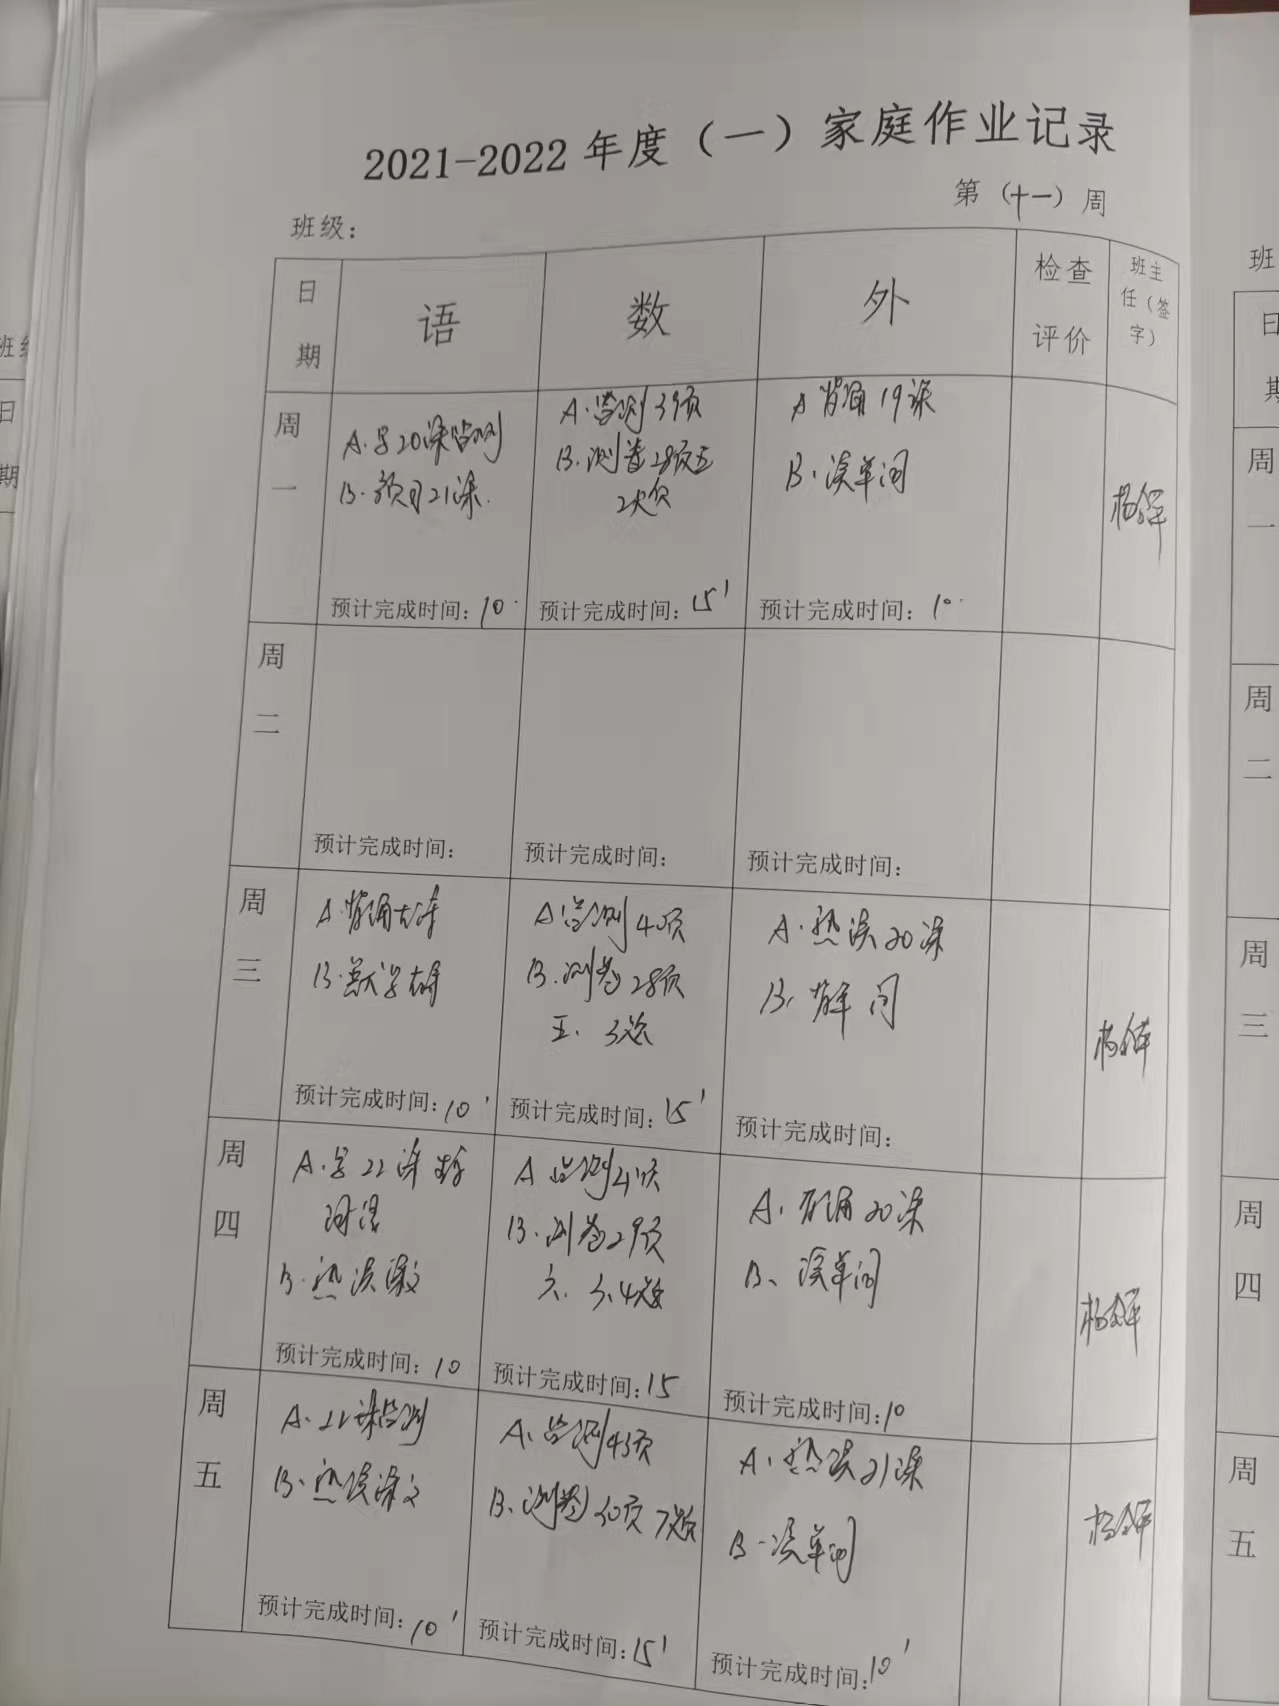 2021-2022 年度（一）家庭作业记录
第（十一）周
班级：
日期 语 数 外 检查评价 班主任（签字）
周一
A.写20课监测
B.预习21课.
预计完成时间：10'
A.监测39页
B.测卷28页五
2大个
预计完成时间：15'
A 背诵19课
B、读单词
预计完成时间：10'
周二
预计完成时间：
预计完成时间：
预计完成时间：
周三
A.背诵古诗
B.默写古诗
预计完成时间：10'
A监测40页
B.测卷28页
五、3题
预计完成时间：15'
A.熟读20课
B、背单词
预计完成时间：
周四
A.写22课生字
词语
B.熟读课文
预计完成时间：10
A监测41页
B.测卷29页
六、3、4题
预计完成时间：15
A、背诵20课
B、读单词
预计完成时间：10
周五
A.22课监测
B.熟读课文
预计完成时间：10'
A、监测43页
B、测卷30页7题
预计完成时间：15'
A.熟读21课
B-读单词
预计完成时间：10'
班
日
期
周一
周二
周三
周四
周五
班级
日
期